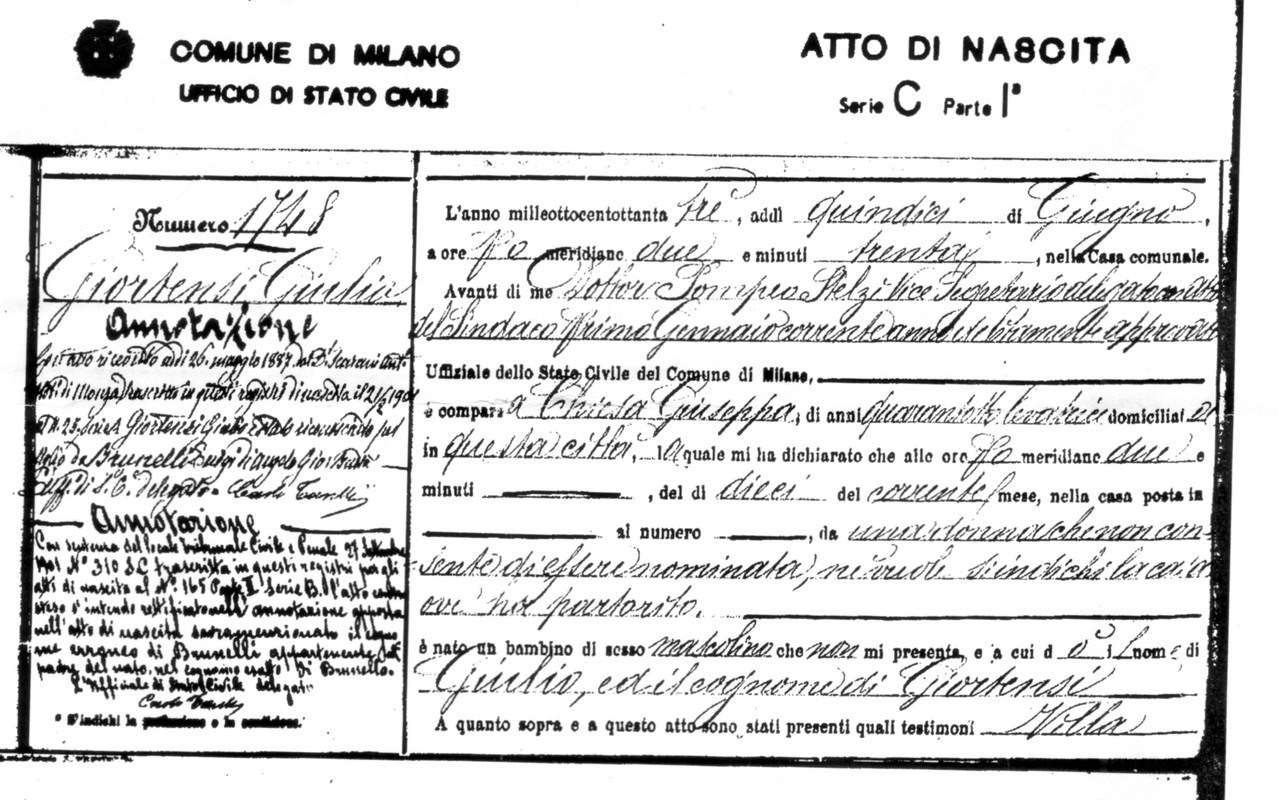 COMUNE DI MILANO
UFFICIO DI STATO CIVILE
ATTO DI NASCITA
Serie C Parte Iª
Numero 1748
Giortensi Giulio
Annotazione
atto ricevuto addì 26 maggio 1887
di Monza trascritto in questi registri di nascita il
Giortensi Giulio è stato riconosciuto
da Brunelli Luigi di
di S. C. delegato
Annotazione
Con sentenza del locale Tribunale Civile e Penale 27 Settembre
1901 Nº 310 S.C. trascritta in questi registri per gli
atti di nascita al Nº 165 Parte II Serie B. l'atto contro
steso s'intende rettificato nell'annotazione apposta
nell'atto di nascita sopramenzionato il cogno
me erroneo di Brunelli appartenente al
padre del nato, nel cognome esatto di Brunello.
L'Ufficiale di Stato Civile delegato
* S'indichi la professione o la condizione.
L'anno milleottocentottanta tre, addì quindici di Giugno,
a ore po meridiane due e minuti trenta, nella Casa comunale.
Avanti di me Dottor Pompeo Stelzi Vice Segretario delegato con atto
del Sindaco Primo Gennaio corrente anno debitamente approvato
Uffiziale dello Stato Civile del Comune di Milano,
è comparsa Chiesa Giuseppa, di anni quarantotto levatrice domiciliata
in questa città, la quale mi ha dichiarato che alle ore po meridiane due e
minuti , del dì dieci del corrente mese, nella casa posta in
al numero , da una donna che non con-
sente di essere nominata, nè vuole s'indichi la casa
ove ha partorito.
è nato un bambino di sesso mascolino che non mi presenta, e a cui dò il nome di
Giulio, ed il cognome di Giortensi
A quanto sopra e a questo atto sono stati presenti quali testimoni Villa